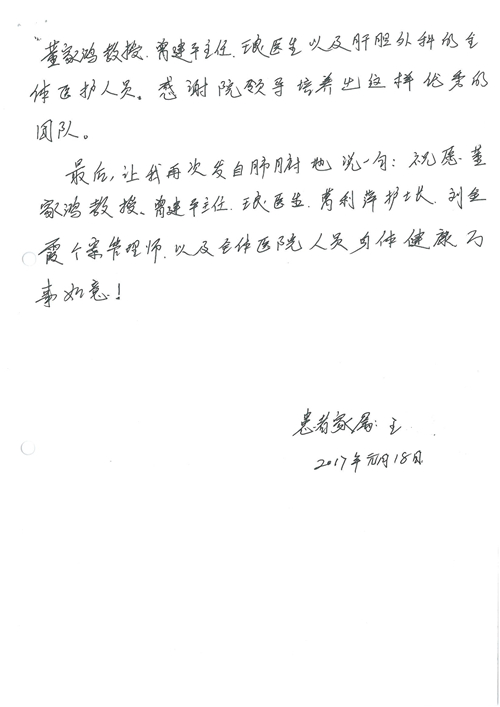 董家鸿教授、曾建平主任、琅医生以及肝胆外科的全
体医护人员。感谢院领导培养出这样优秀的
团队。
最后,让我再次发自肺腑地说一句:祝愿董
家鸿教授、曾建平主任、琅医生、利萍护士长、刘金
霞个案管理师、以及全体医院人员身体健康万
事如意!
患者家属:王
2017年元月18日